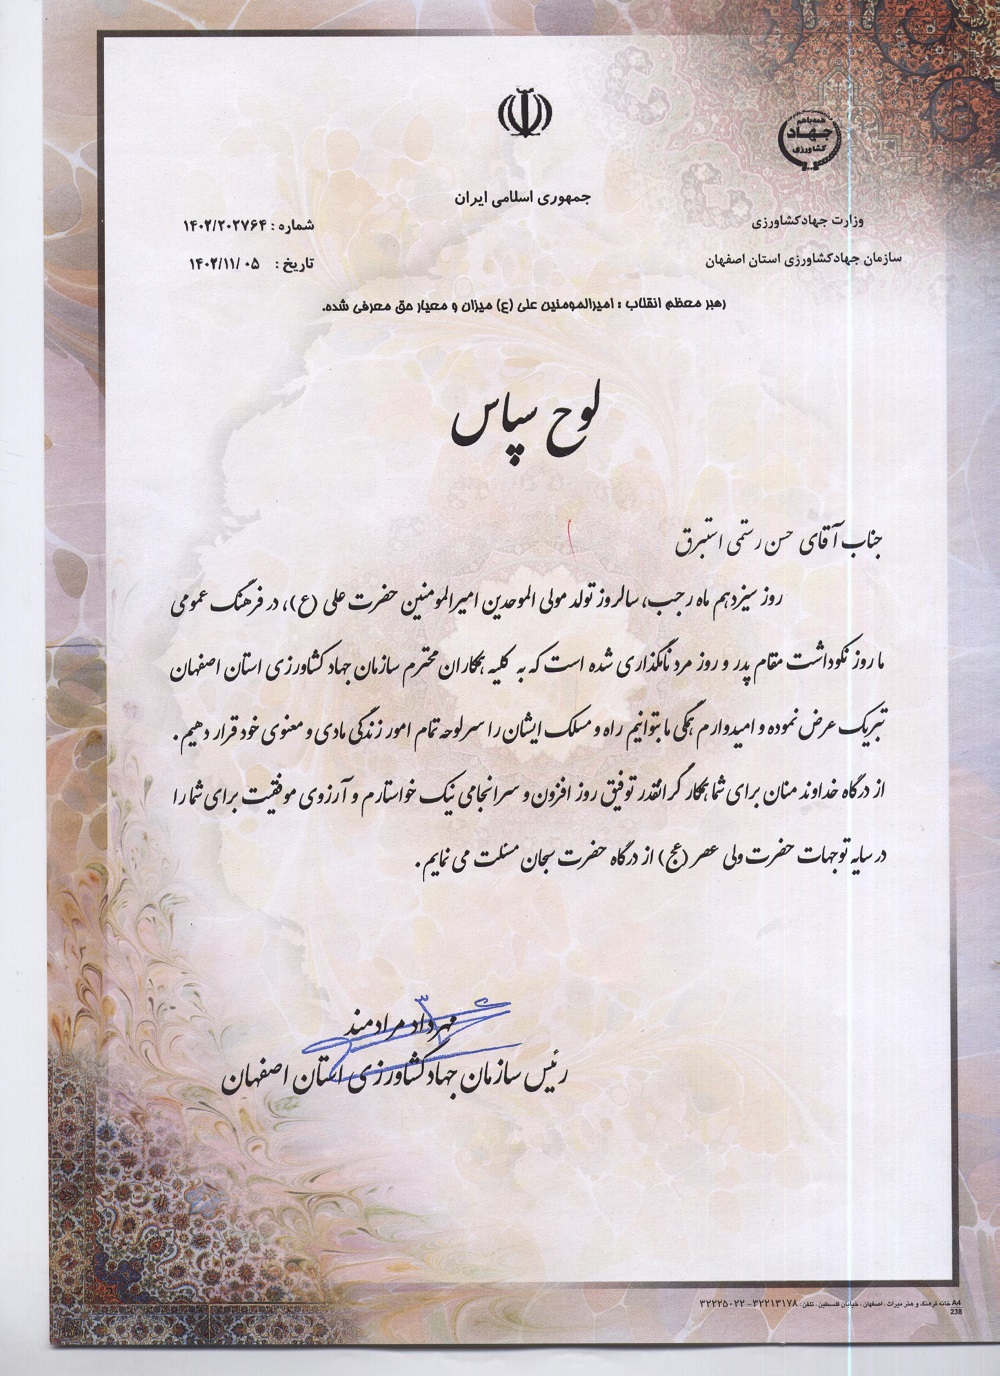 همه با هم
جهاد
کشاورزی
جمهوری اسلامی ایران
وزارت جهادکشاورزی
سازمان جهادکشاورزی استان اصفهان
شماره : ۱۴۰۲/۲۰۲۷۶۴
تاریخ : ۱۴۰۲/۱۱/۰۵
رهبر معظم انقلاب : امیرالمومنین علی (ع) میزان و معیار حق معرفی شده.
لوح سپاس
جناب آقای حسن رستمی استبرق
روز سیزدهم ماه رجب، سالروز تولد مولی الموحدین امیرالمومنین حضرت علی (ع)، در فرهنگ عمومی
ما روز نکوداشت مقام پدر و روز مرد نامگذاری شده است که به کلیه همکاران محترم سازمان جهاد کشاورزی استان اصفهان
تبریک عرض نموده و امیدوارم همگی ما بتوانیم راه و مسلک ایشان را سرلوحه تمام امور زندگی مادی و معنوی خود قرار دهیم.
از درگاه خداوند منان برای شما همکار گرانقدر توفیق روز افزون و سرانجامی نیک خواستارم و آرزوی موفقیت برای شما را
در سایه توجهات حضرت ولی عصر (عج) از درگاه حضرت سبحان مسئلت می نمایم.
مهرداد مرادمند
رئیس سازمان جهاد کشاورزی استان اصفهان
A4 خانه فرهنگ و هنر میراث . اصفهان . خیابان فلسطین . تلفن : ۳۲۲۱۳۱۷۸ - ۳۲۲۲۵۰۲۲
238